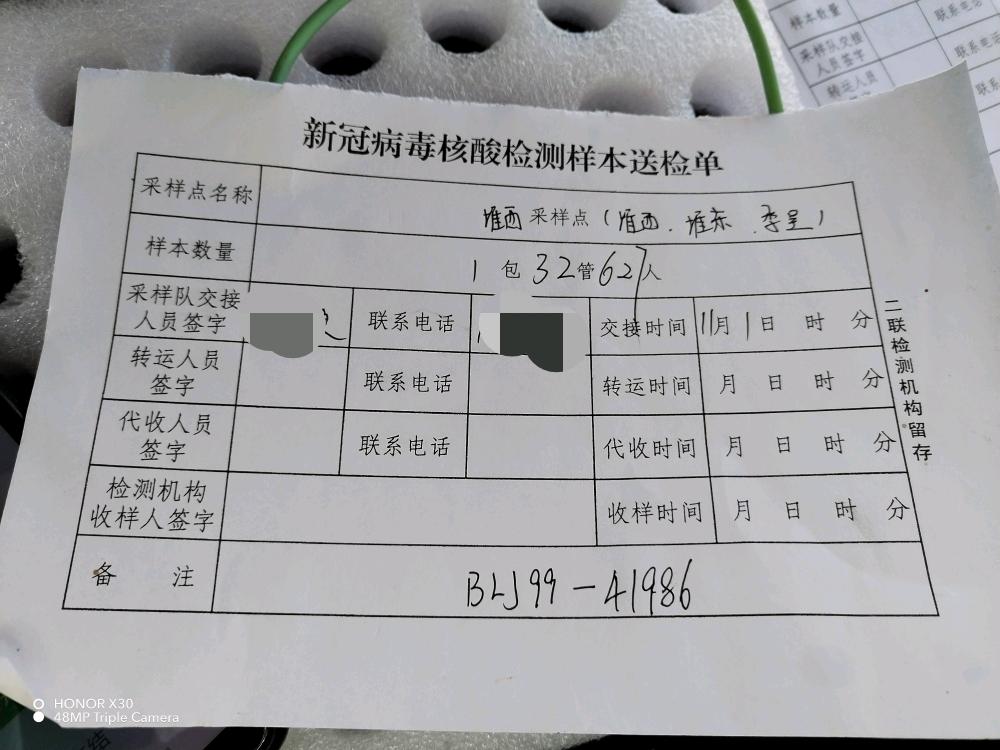 样本数量
联系电话
采样队交接
人员签字
联系电话
转运人员
签字
联系
新冠病毒核酸检测样本送检单
采样点名称
堆西 采样点（堆西、堆东、李呈）
样本数量
1 包 32 管 627 人
采样队交接
人员签字
联系电话
交接时间
11月 1日 时 分
转运人员
签字
联系电话
转运时间
月 日 时 分
代收人员
签字
联系电话
代收时间
月 日 时 分
检测机构
收样人签字
收样时间
月 日 时 分
备 注
BLJ99-41986
二联检测机构留存
HONOR X30
48MP Triple Camera